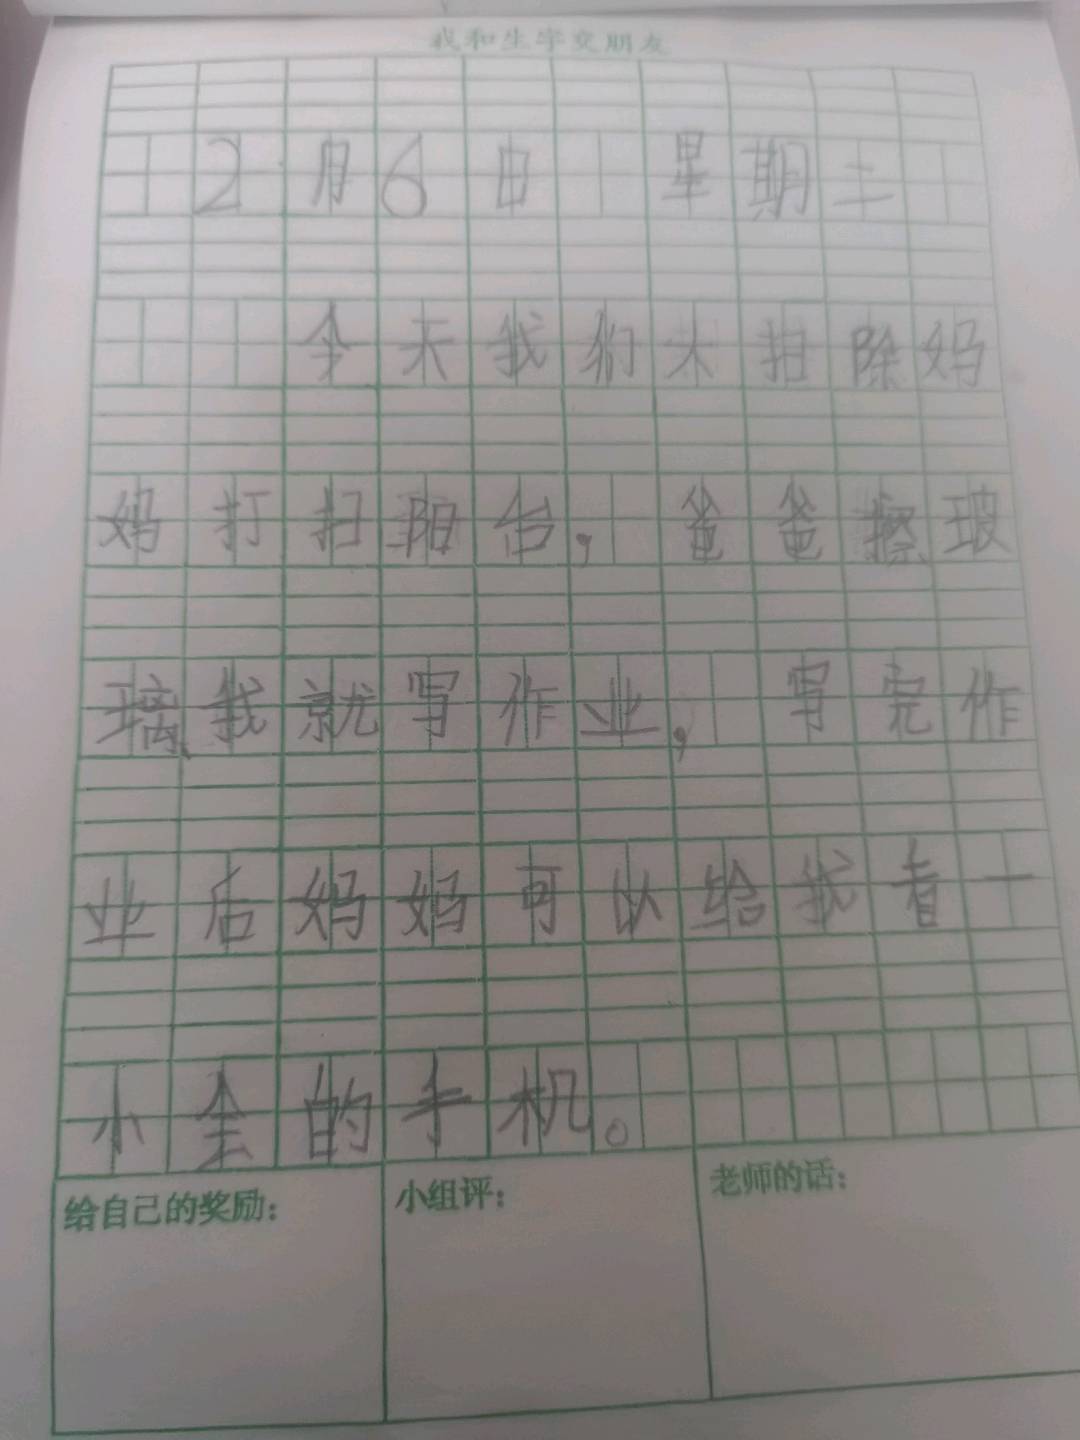 我和生字交朋友
2月6日 星期二
今天我们大扫除妈
妈打扫阳台，爸爸擦玻
璃、我就写作业，写完作
业后妈妈可以给我看一
小全的手机。
给自己的奖励：
小组评：
老师的话：